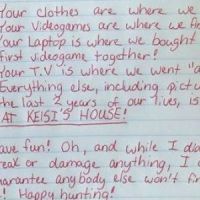 Your clothes are where we
Your Videogames are where we
Your Laptop is where we bought
first videogame together!
Your T.V is where we went "a
Everything else, including pict
the last 2 years of our lives, is
AT KEISI'S HOUSE!
ave fun! Oh, and while I did
reak or damage anything, I
uarantee anybody else won't fin
! Happy hunting!